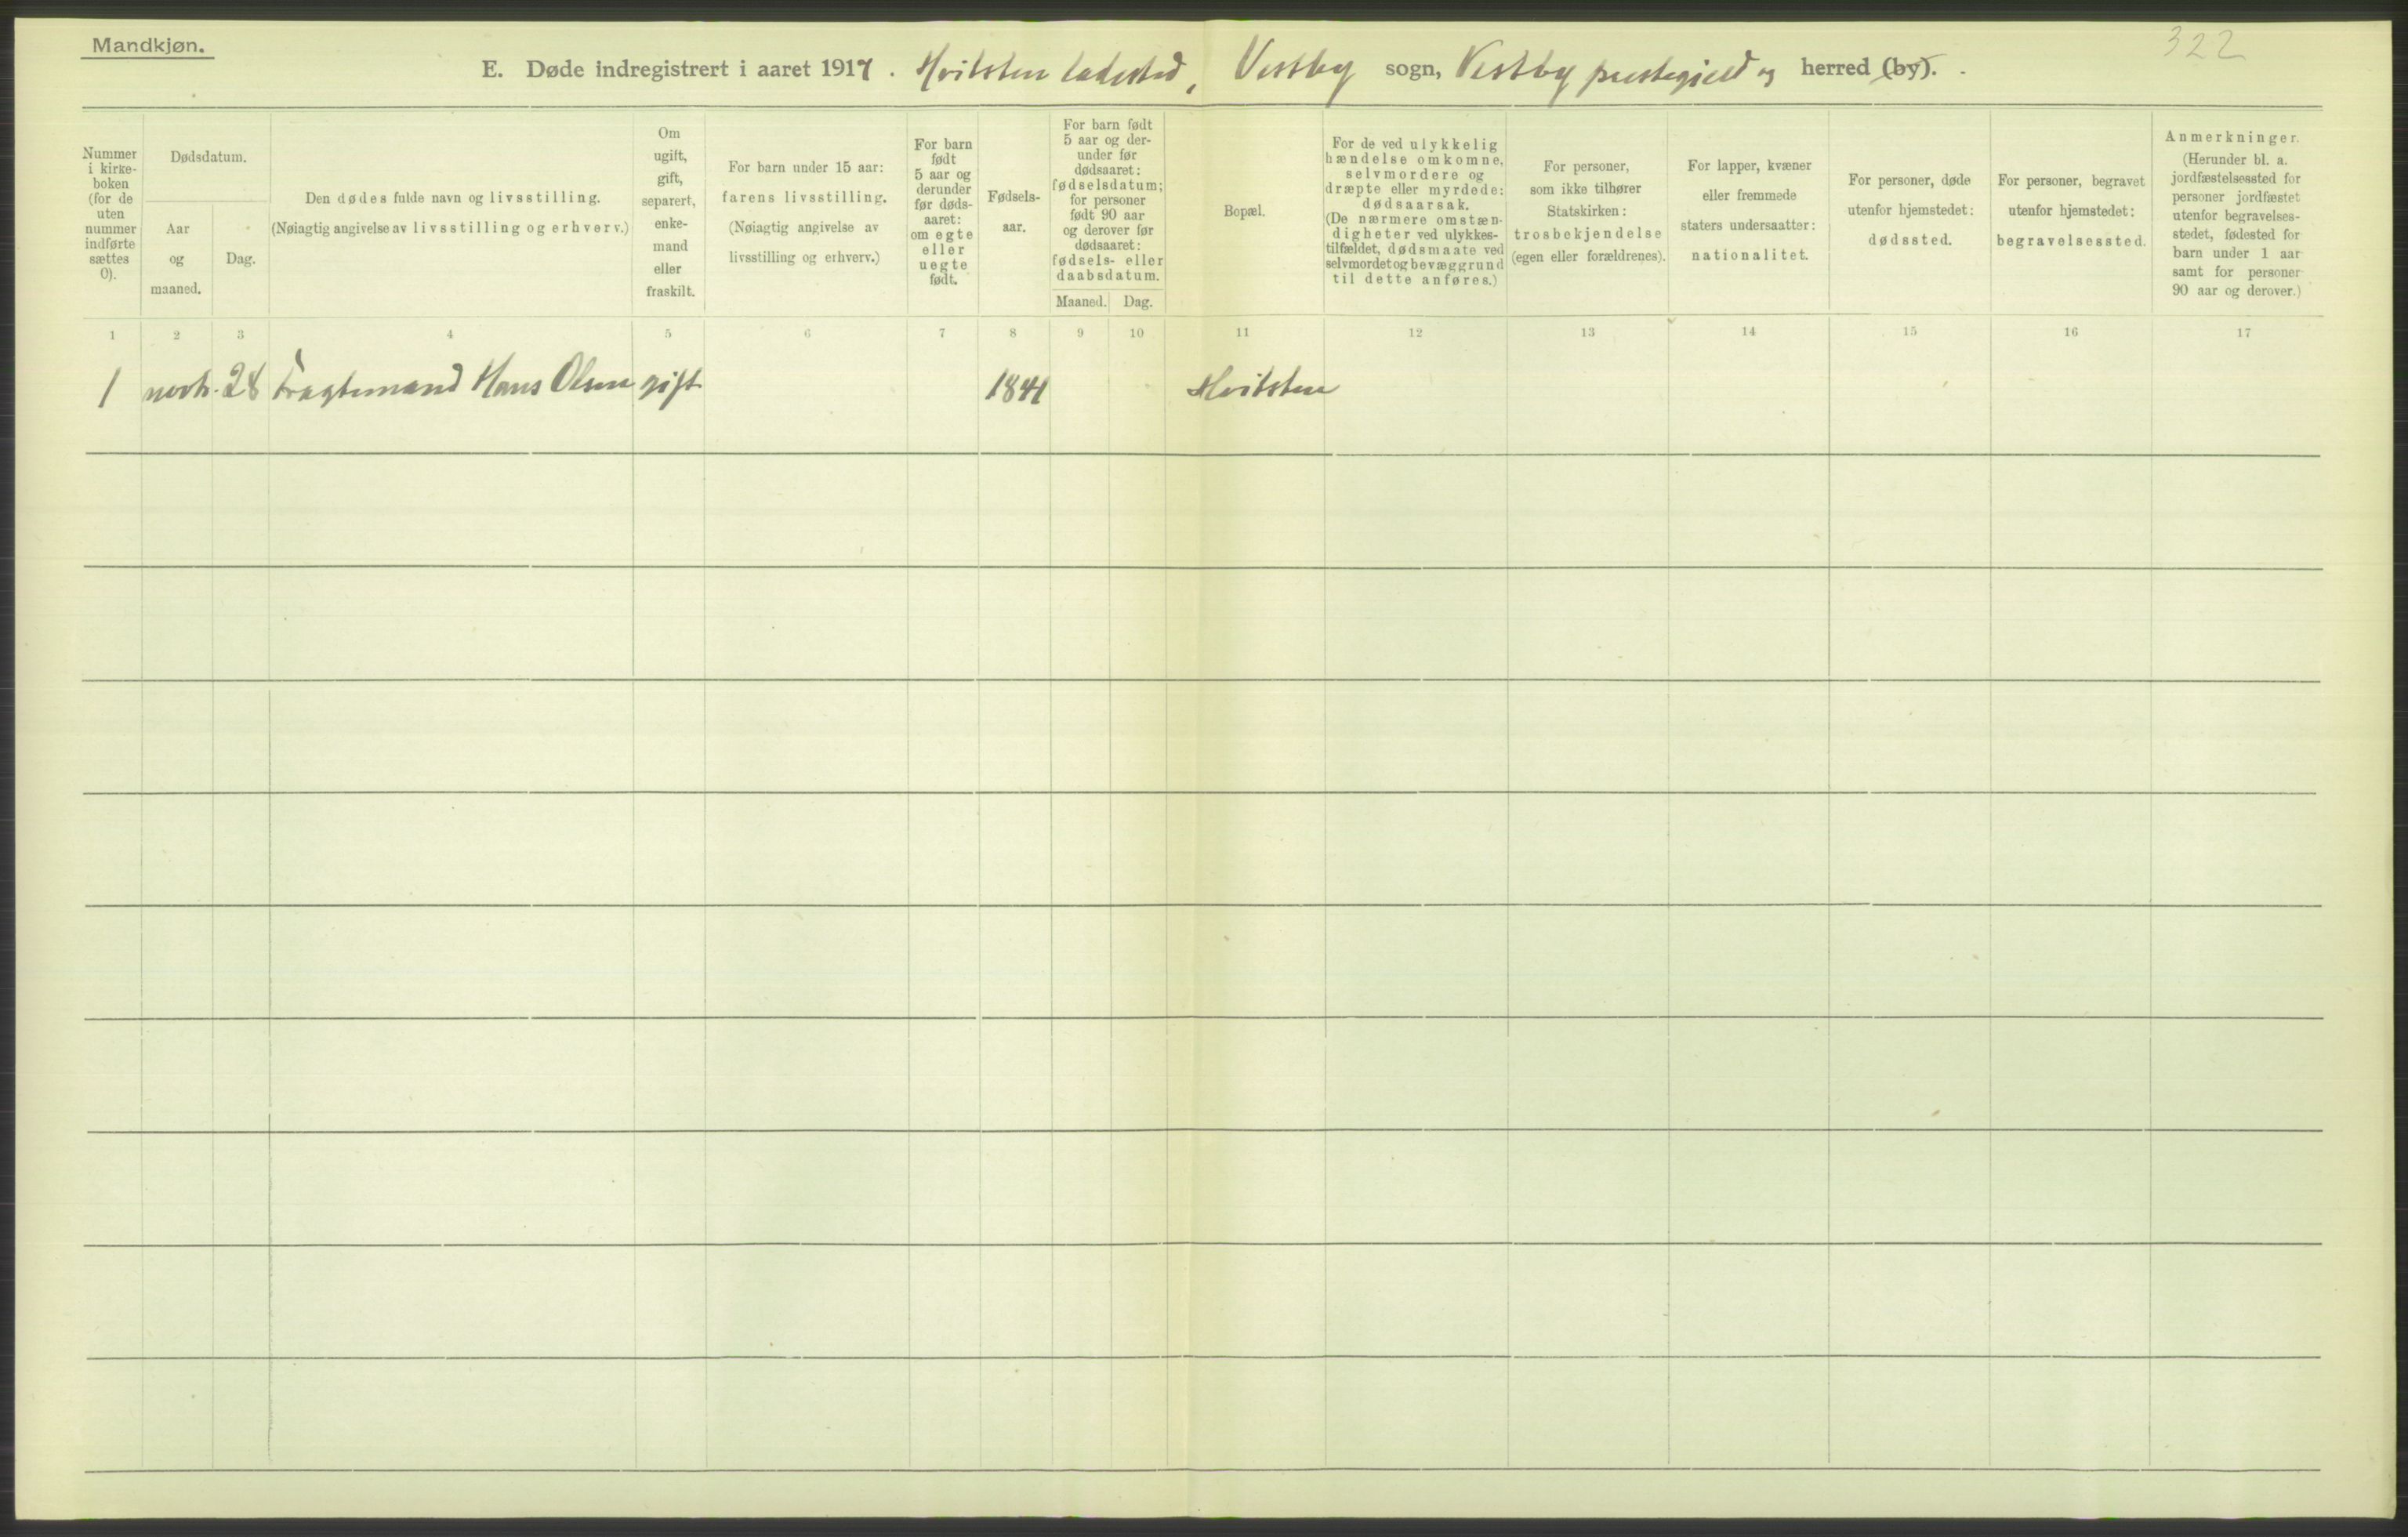 Mandkjøn.
322
E. Døde indregistrert i aaret 1917. Hvitsten ladested, Vestby sogn, Vestby prestegjeld og herred (by).
Nummer
i kirke-
boken
(for de
uten
nummer
indførte
sættes
0).
Dødsdatum.
Aar
og
maaned.
Dag.
Den dødes fulde navn og livsstilling.
(Nøiagtig angivelse av livsstilling og erhverv.)
Om
ugift,
gift,
separert,
enke-
mand
eller
fraskilt.
For barn under 15 aar:
farens livsstilling.
(Nøiagtig angivelse av
livsstilling og erhverv.)
For barn
født
5 aar og
derunder
før døds-
aaret:
om egte
eller
uegte
født.
Fødsels-
aar.
For barn født
5 aar og der-
under før
dødsaaret:
fødselsdatum;
for personer
født 90 aar
og derover før
dødsaaret:
fødsels- eller
daabsdatum.
Maaned. Dag.
Bopæl.
For de ved ulykkelig
hændelse omkomne,
selvmordere og
dræpte eller myrdede:
dødsaarsak.
(De nærmere omstæn-
digheter ved ulykkes-
tilfældet, dødsmaate ved
selvmordet og bevæggrund
til dette anføres.)
For personer,
som ikke tilhører
Statskirken:
trosbekjendelse
(egen eller forældrenes).
For lapper, kvæner
eller fremmede
staters undersaatter:
nationalitet.
For personer, døde
utenfor hjemstedet:
dødssted.
For personer, begravet
utenfor hjemstedet:
begravelsessted.
Anmerkninger.
(Herunder bl. a.
jordfæstelsessted for
personer jordfæstet
utenfor begravelses-
stedet, fødested for
barn under 1 aar
samt for personer
90 aar og derover.)
1 2 3 4 5 6 7 8 9 10 11 12 13 14 15 16 17
1 novbr. 28 Fragtemand Hans Olsen gift 1841 Hvitsten